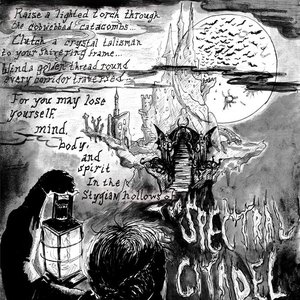 Raise a lighted torch through
the cobwebbed catacombs...
Clutch a crystal talisman
to your shivering frame...
Wend a golden thread round
every corridor traversed -
For you may lose
yourself,
mind,
body,
and
spirit
In the
Stygian hollows of
SPECTRAL
CITADEL